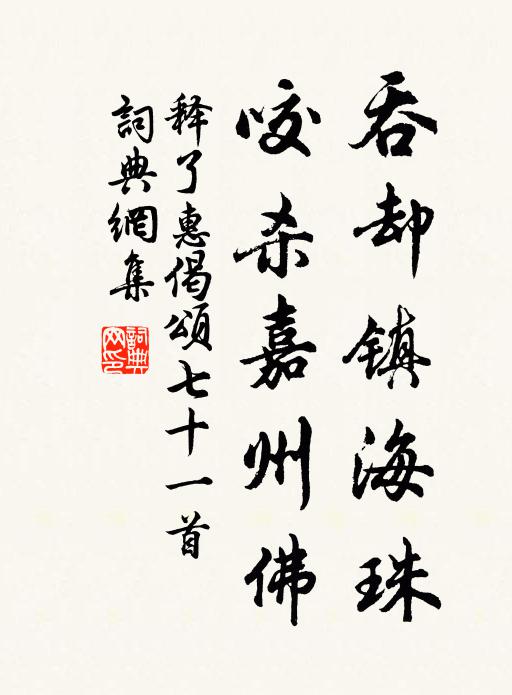 吞却镇海珠
咬杀嘉州佛
释了惠偈颂七十一首
詞典網集
詞典网印